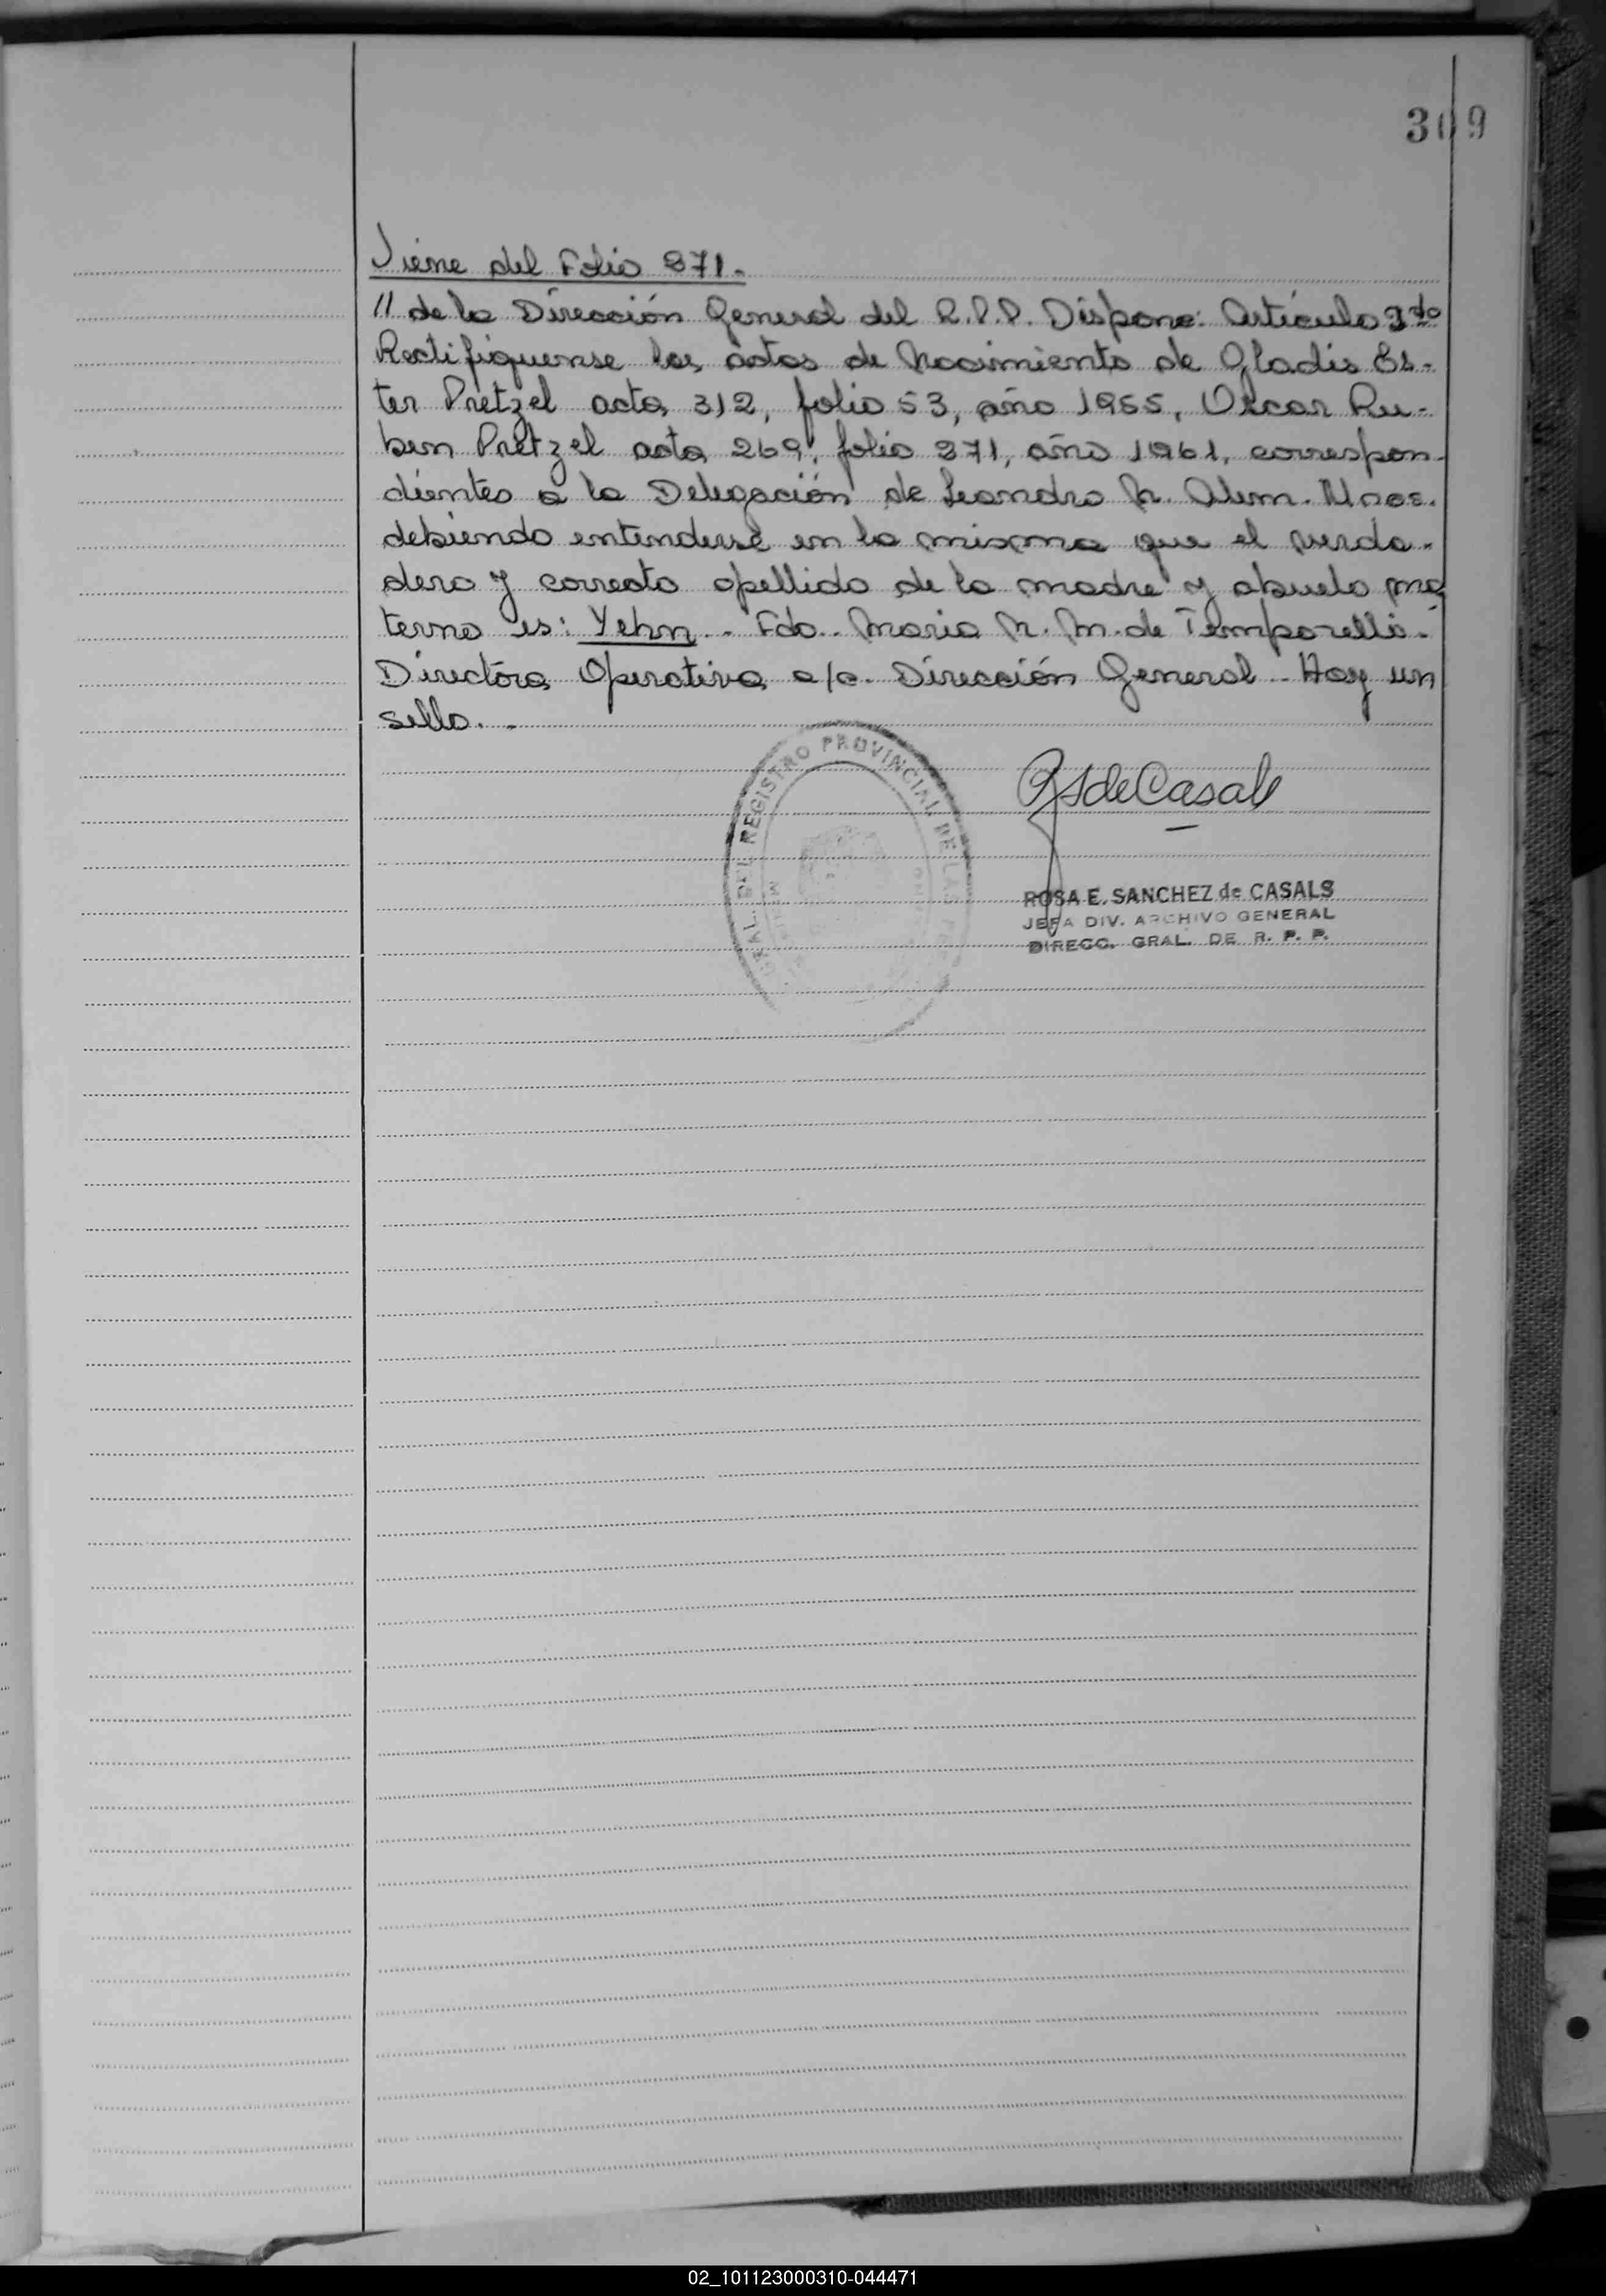 309
Viene del Folio 271.
// de la Dirección General del R.P.P. Dispone: Artículo 1do
Rectifiquense las actas de Nacimiento de Gladis Es-
ter Pretzel acta 312, folio 53, año 1955, Oscar Ru-
ben Pretzel acta 269, folio 271, año 1961, correspon-
dientes a la Delegación de Leandro N. Alem. Mnes.
debiendo entenderse en la misma que el verda-
dero y correcto apellido de la madre y abuelo ma
terno es: Yehn.- Fdo.. Maria N. M. de Temporelli.-
Directora Operativa a/c. Dirección General.- Hay un
sello.-
REGISTRO PROVINCIAL DE LAS
RS de Casals
ROSA E. SANCHEZ de CASALS
JEFA DIV. ARCHIVO GENERAL
DIRECC. GRAL. DE R. P. P.
02_101123000310-044471